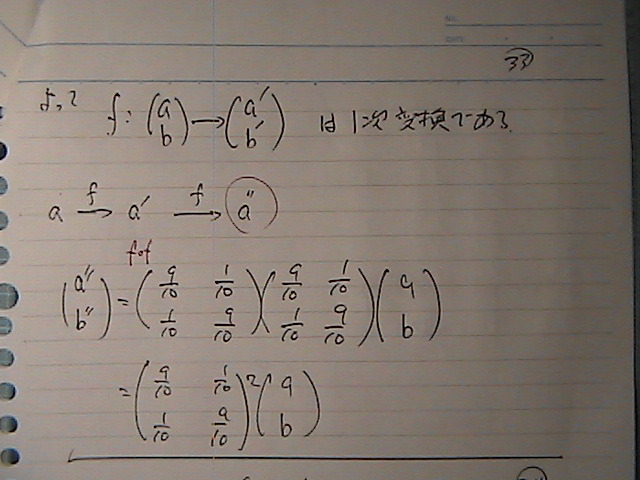 NO.
DATE
33
よって f: (a b) → (a' b') は1次変換である
a f→ a' f→ a''
f∘f
(a'' b'') = (9/10 1/10 1/10 9/10)(9/10 1/10 1/10 9/10)(a b)
= (9/10 1/10 1/10 9/10)² (a b)